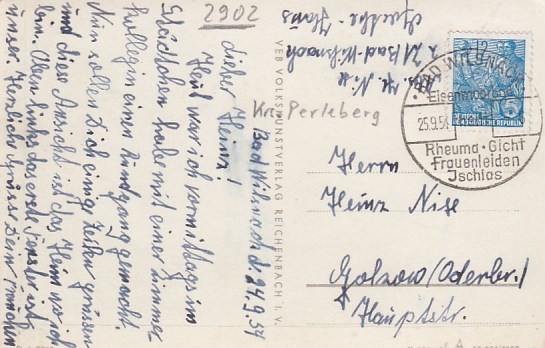 2902
Bad Wilsnack d. 24.9.54
Lieber Heinz!
Heut war ich vormittags im
Städtchen habe mit einer Zimmer
kollegin einen Rundgang gemacht.
Nun sollen Dich einige Zeilen grüssen
und diese Ansicht ist das Heim wo ich
bin. Oben links das erste Fenster ist
unser. Herzlich grüsst Dein
z. Zt. Bad-Wilsnack
Goethe-Haus
Krs Perleberg
VEB VOLKSKUNSTVERLAG REICHENBACH I. V.
BAD WILSNACK
Eisenmoorbad
25.9.54
-12
Rheuma · Gicht
Frauenleiden
Ischias
DEUTSCHE
DEMOKRATISCHE REPUBLIK
5
Herrn
Heinz Nise
Golzow (Oderbr.)
Hauptstr.